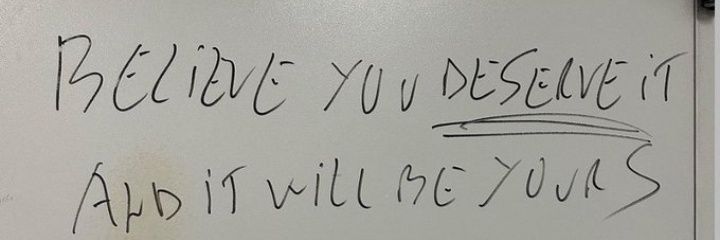 BELiEVE YOU DESERVE iT
AND iT WiLL BE YOURS